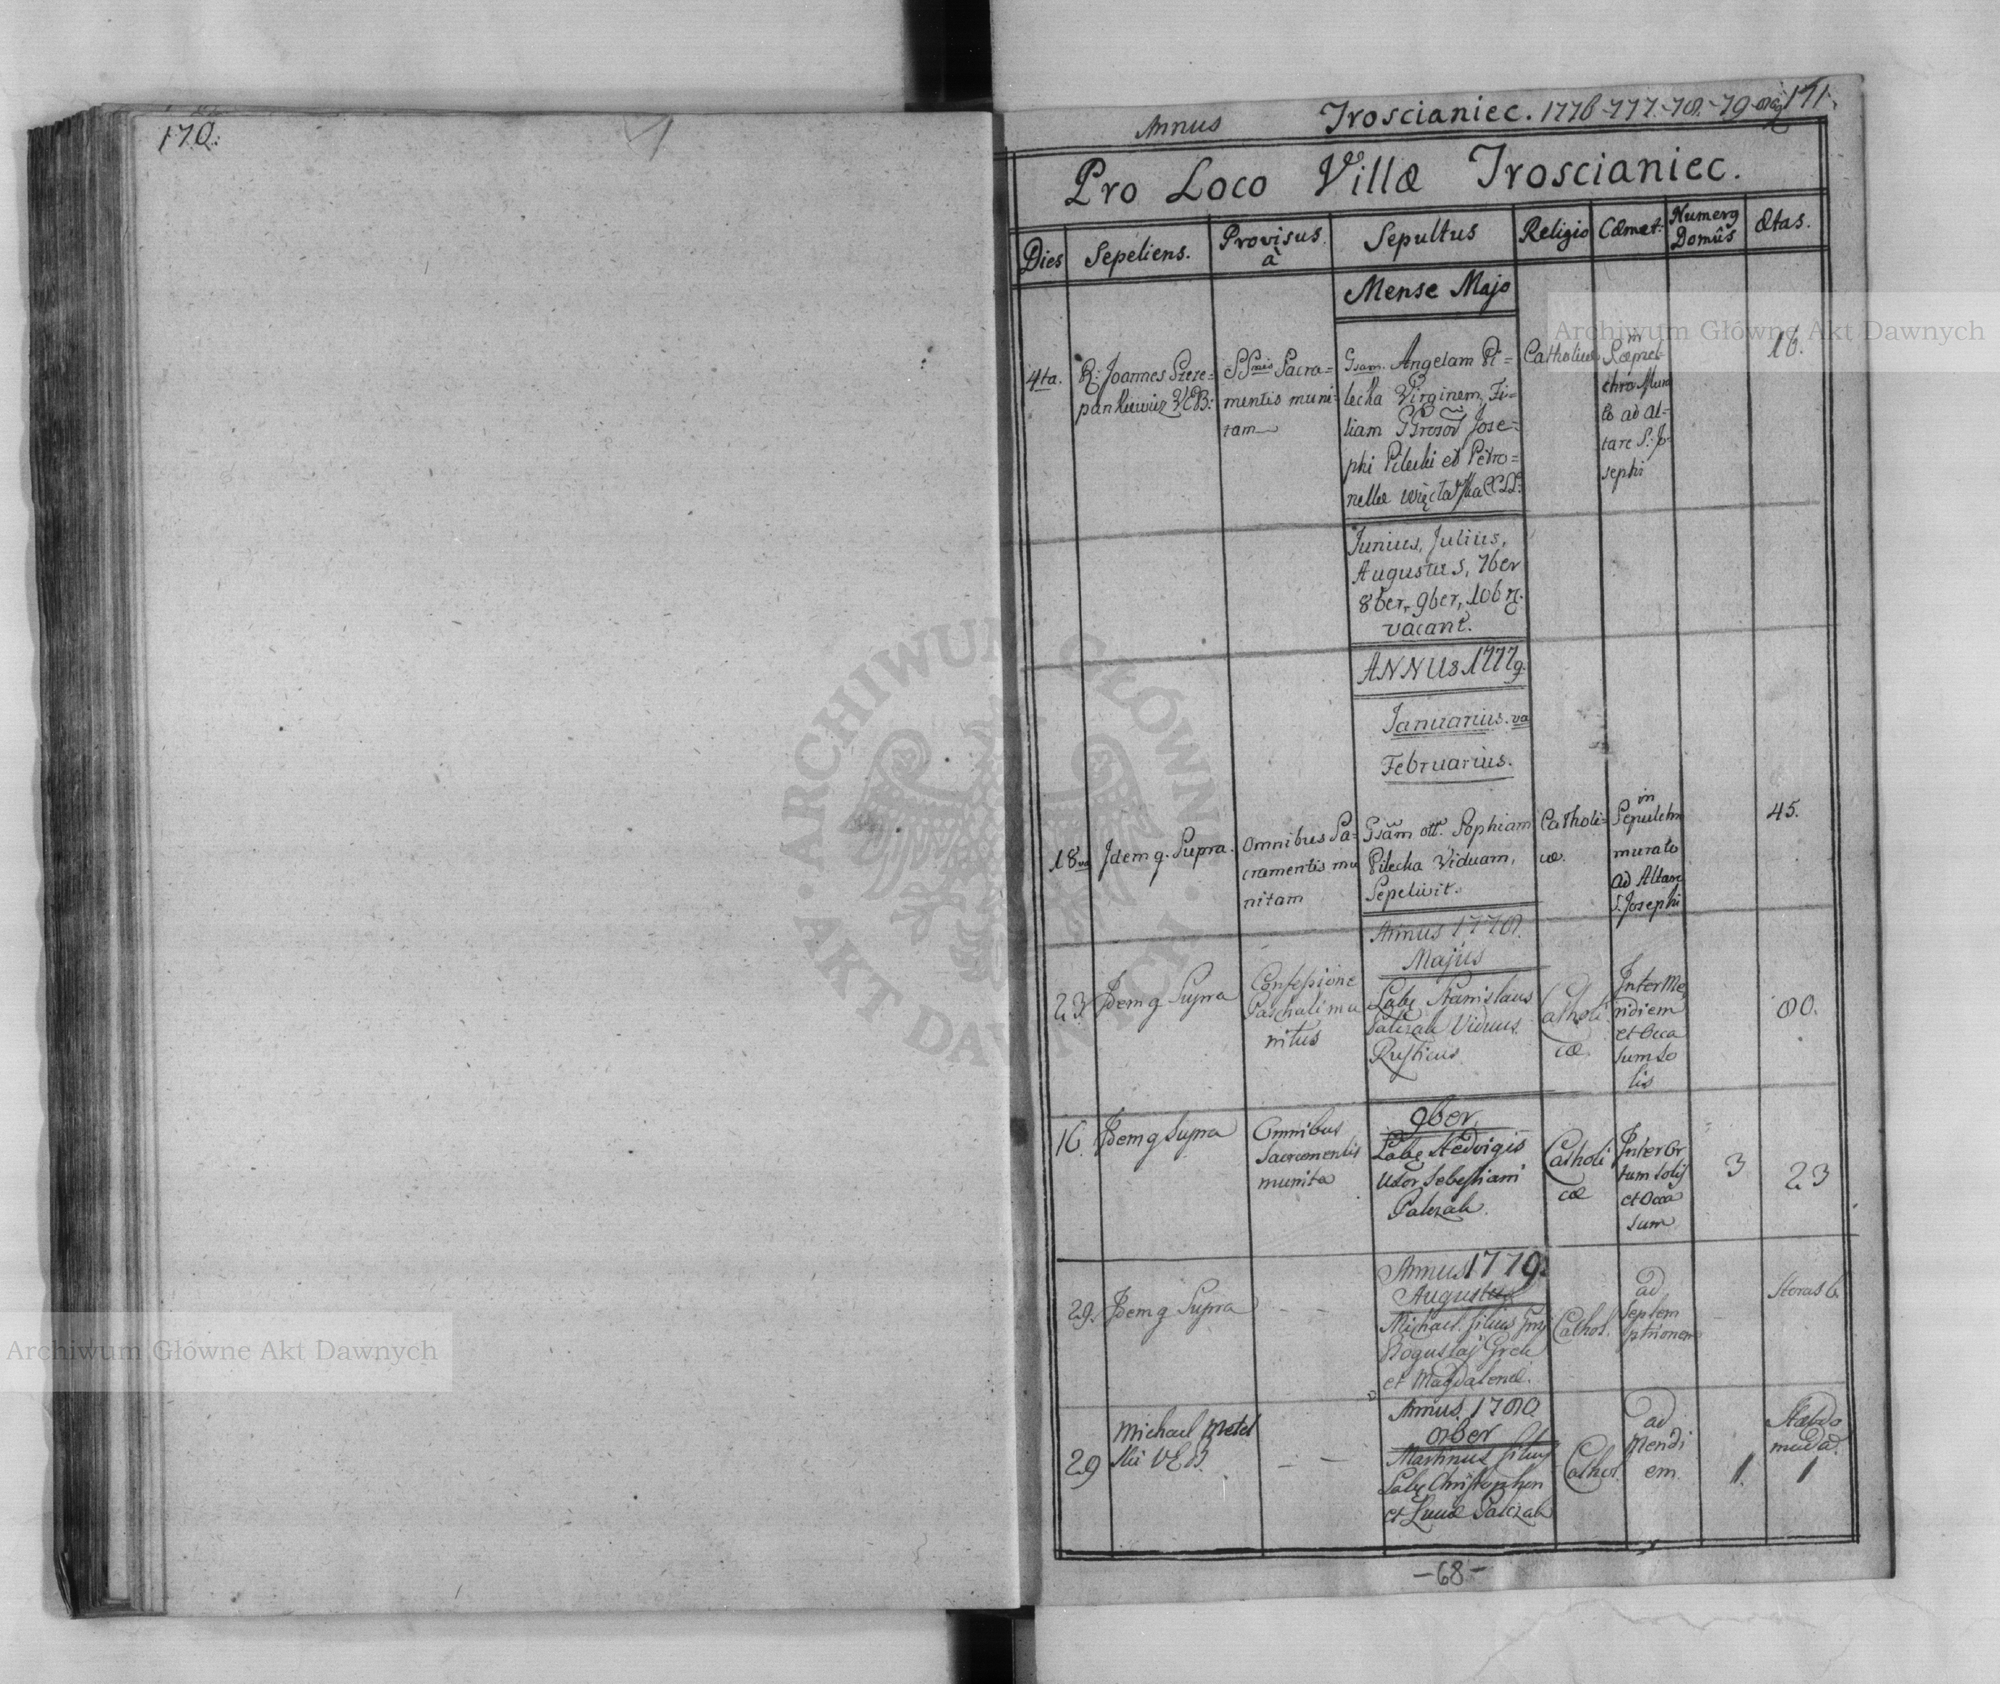 170.
Annus Troscianiec. 1776-777.-78.-79-
171.
Pro Loco Villæ Troscianiec.
Dies
Sepeliens.
Provisus
à
Sepultus
Religio
Cœmet:
Numerq
Domûs
Ætas.
Mense Majo
4ta.
R: Joannes Szcze=
pankiewicz VCB:
SSmis Sacra=
mentis muni=
tam
Gsam. Angelam Pi=
lecka Virginem, Fi=
liam GGrosor Jose=
phi Pilecki et Petro=
nellæ
Catholicæ
in
chro
ad al=
tare S. Jo
sephi
16.
Junius, Julius,
Augustus, 7ber
8ber, 9ber, 10br.
vacant.
ANNUS 1777q.
Januarius. va
Februarius.
18va
Jdem q. Supra.
Omnibus Sa=
cramentis mu
nitam
Gsam olt. Sophiam
Pilecka Viduam,
Sepelivit.
Catholi=
cæ.
in
Sepulchr
murato
ad Altare
S. Josephi
45.
Annus 1778.
Majus
23
Jdem q Supra
Confessione
Paschali mu
nitus
Lab. Stanislaus
Palczak Viduus
Rusticus
Catholi
cæ
Inter Me
ridiem
et Occa
sum So
lis
80.
9ber
16.
Jdem q Supra
Omnibus
Sacramentis
munita
Lab. Hedvigis
Uxor Sebestiani
Palczak.
Catholi
cæ
Inter Or
tum solis
et Occa
sum
3
23
Annus 1779.
Augustus
29.
Jdem q Supra
- -
Michael filius
Boguslaj Grek
et Magdalenæ.
Cathol.
ad
Septem
ptrionem
Horas 6.
Annus. 1780.
8ber
29
Michael
ski VCB.
- -
Martinus filius
Lab. Christophori
et Luciæ Palczak
Cathol.
ad
Meridi
em
1.
Hebdo
mada.
1
-68-
Archiwum Główne Akt Dawnych
Archiwum Główne Akt Dawnych
ARCHIWUM GŁÓWNE · AKT DAWNYCH ·